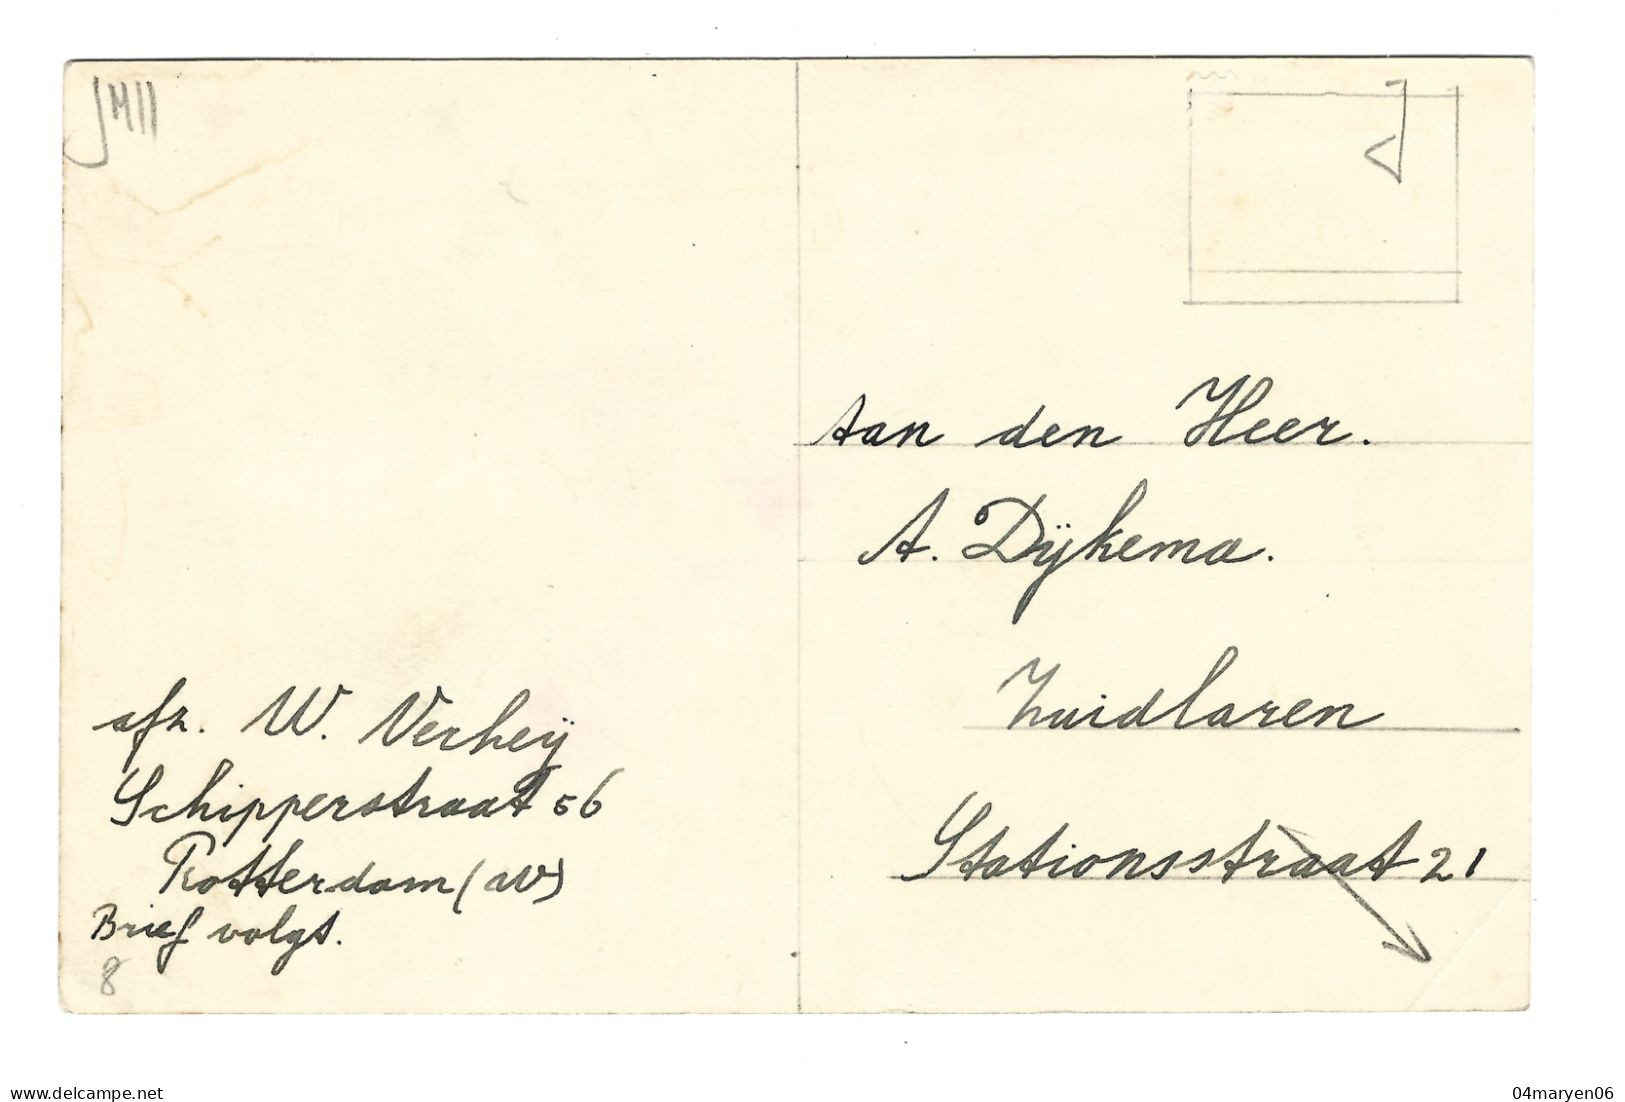 Aan den Heer.
A. Dÿkema.
Zuidlaren
Stationsstraat 21
afz. W. Verheÿ
Schipperstraat 56
Rotterdam (W)
Brief volgt.
8
www.delcampe.net
04maryen06